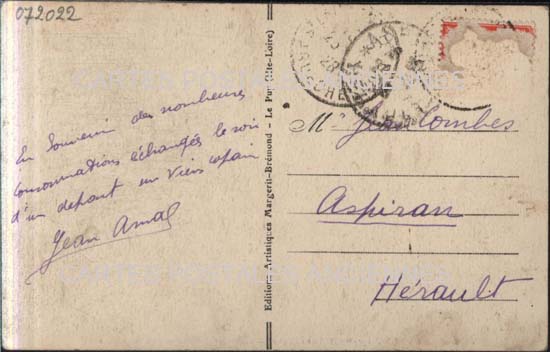 072022
En Souvenir des nombreuses
consommations échangées le soir
d'un depart un Vieux copain
Jean Arnal
Editions Artistiques Margerit-Brémond - Le Puy (Hte-Loire)
Mr Jean Combes
Aspiran
Hérault
CARTES POSTALES ANCIENNES
CARTES POSTALES ANCIENNES